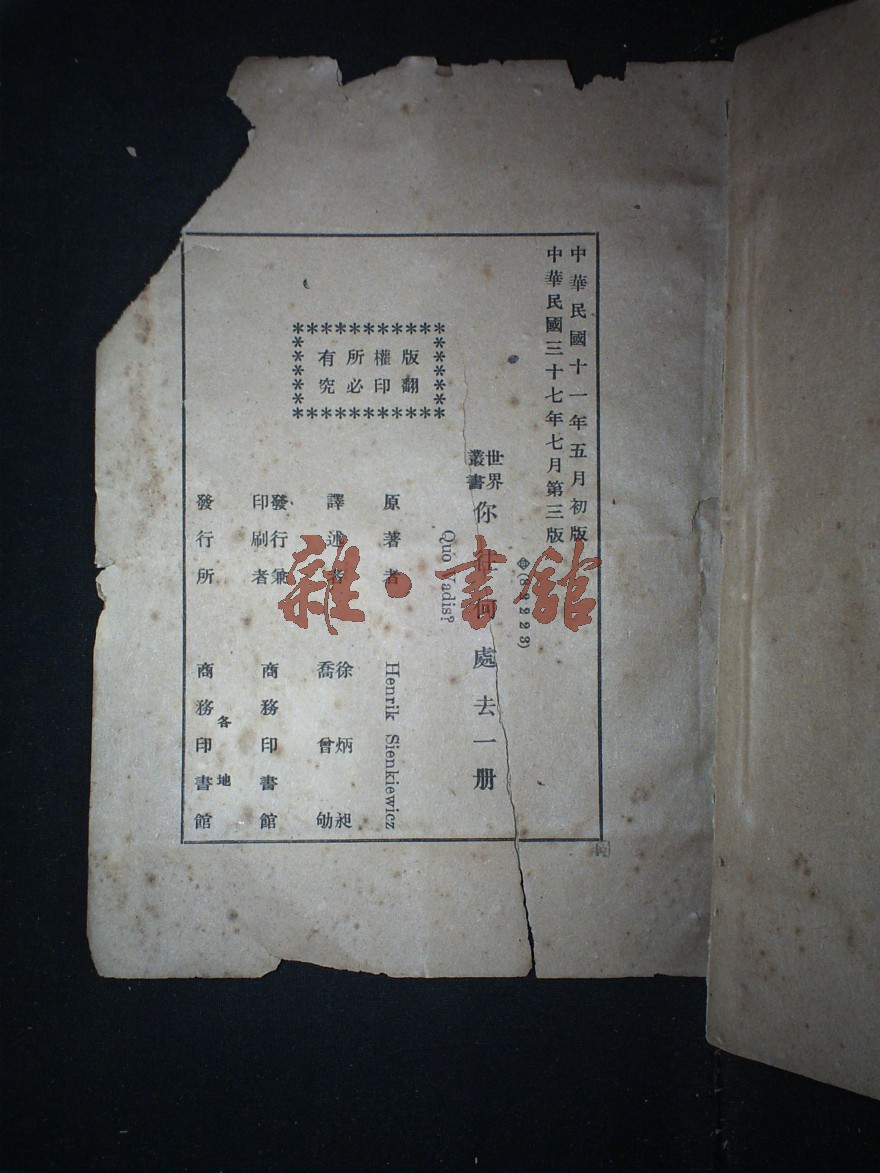 中華民國十一年五月初版
中華民國三十七年七月第三版
(82223)
世界叢書 你往何處去一册
Quo Vadis?
版權所有
翻印必究
原著者 Henrik Sienkiewicz
譯述者 徐炳昶 喬曾劬
發行兼印刷者 商務印書館
發行所 各地 商務印書館
雜·書館